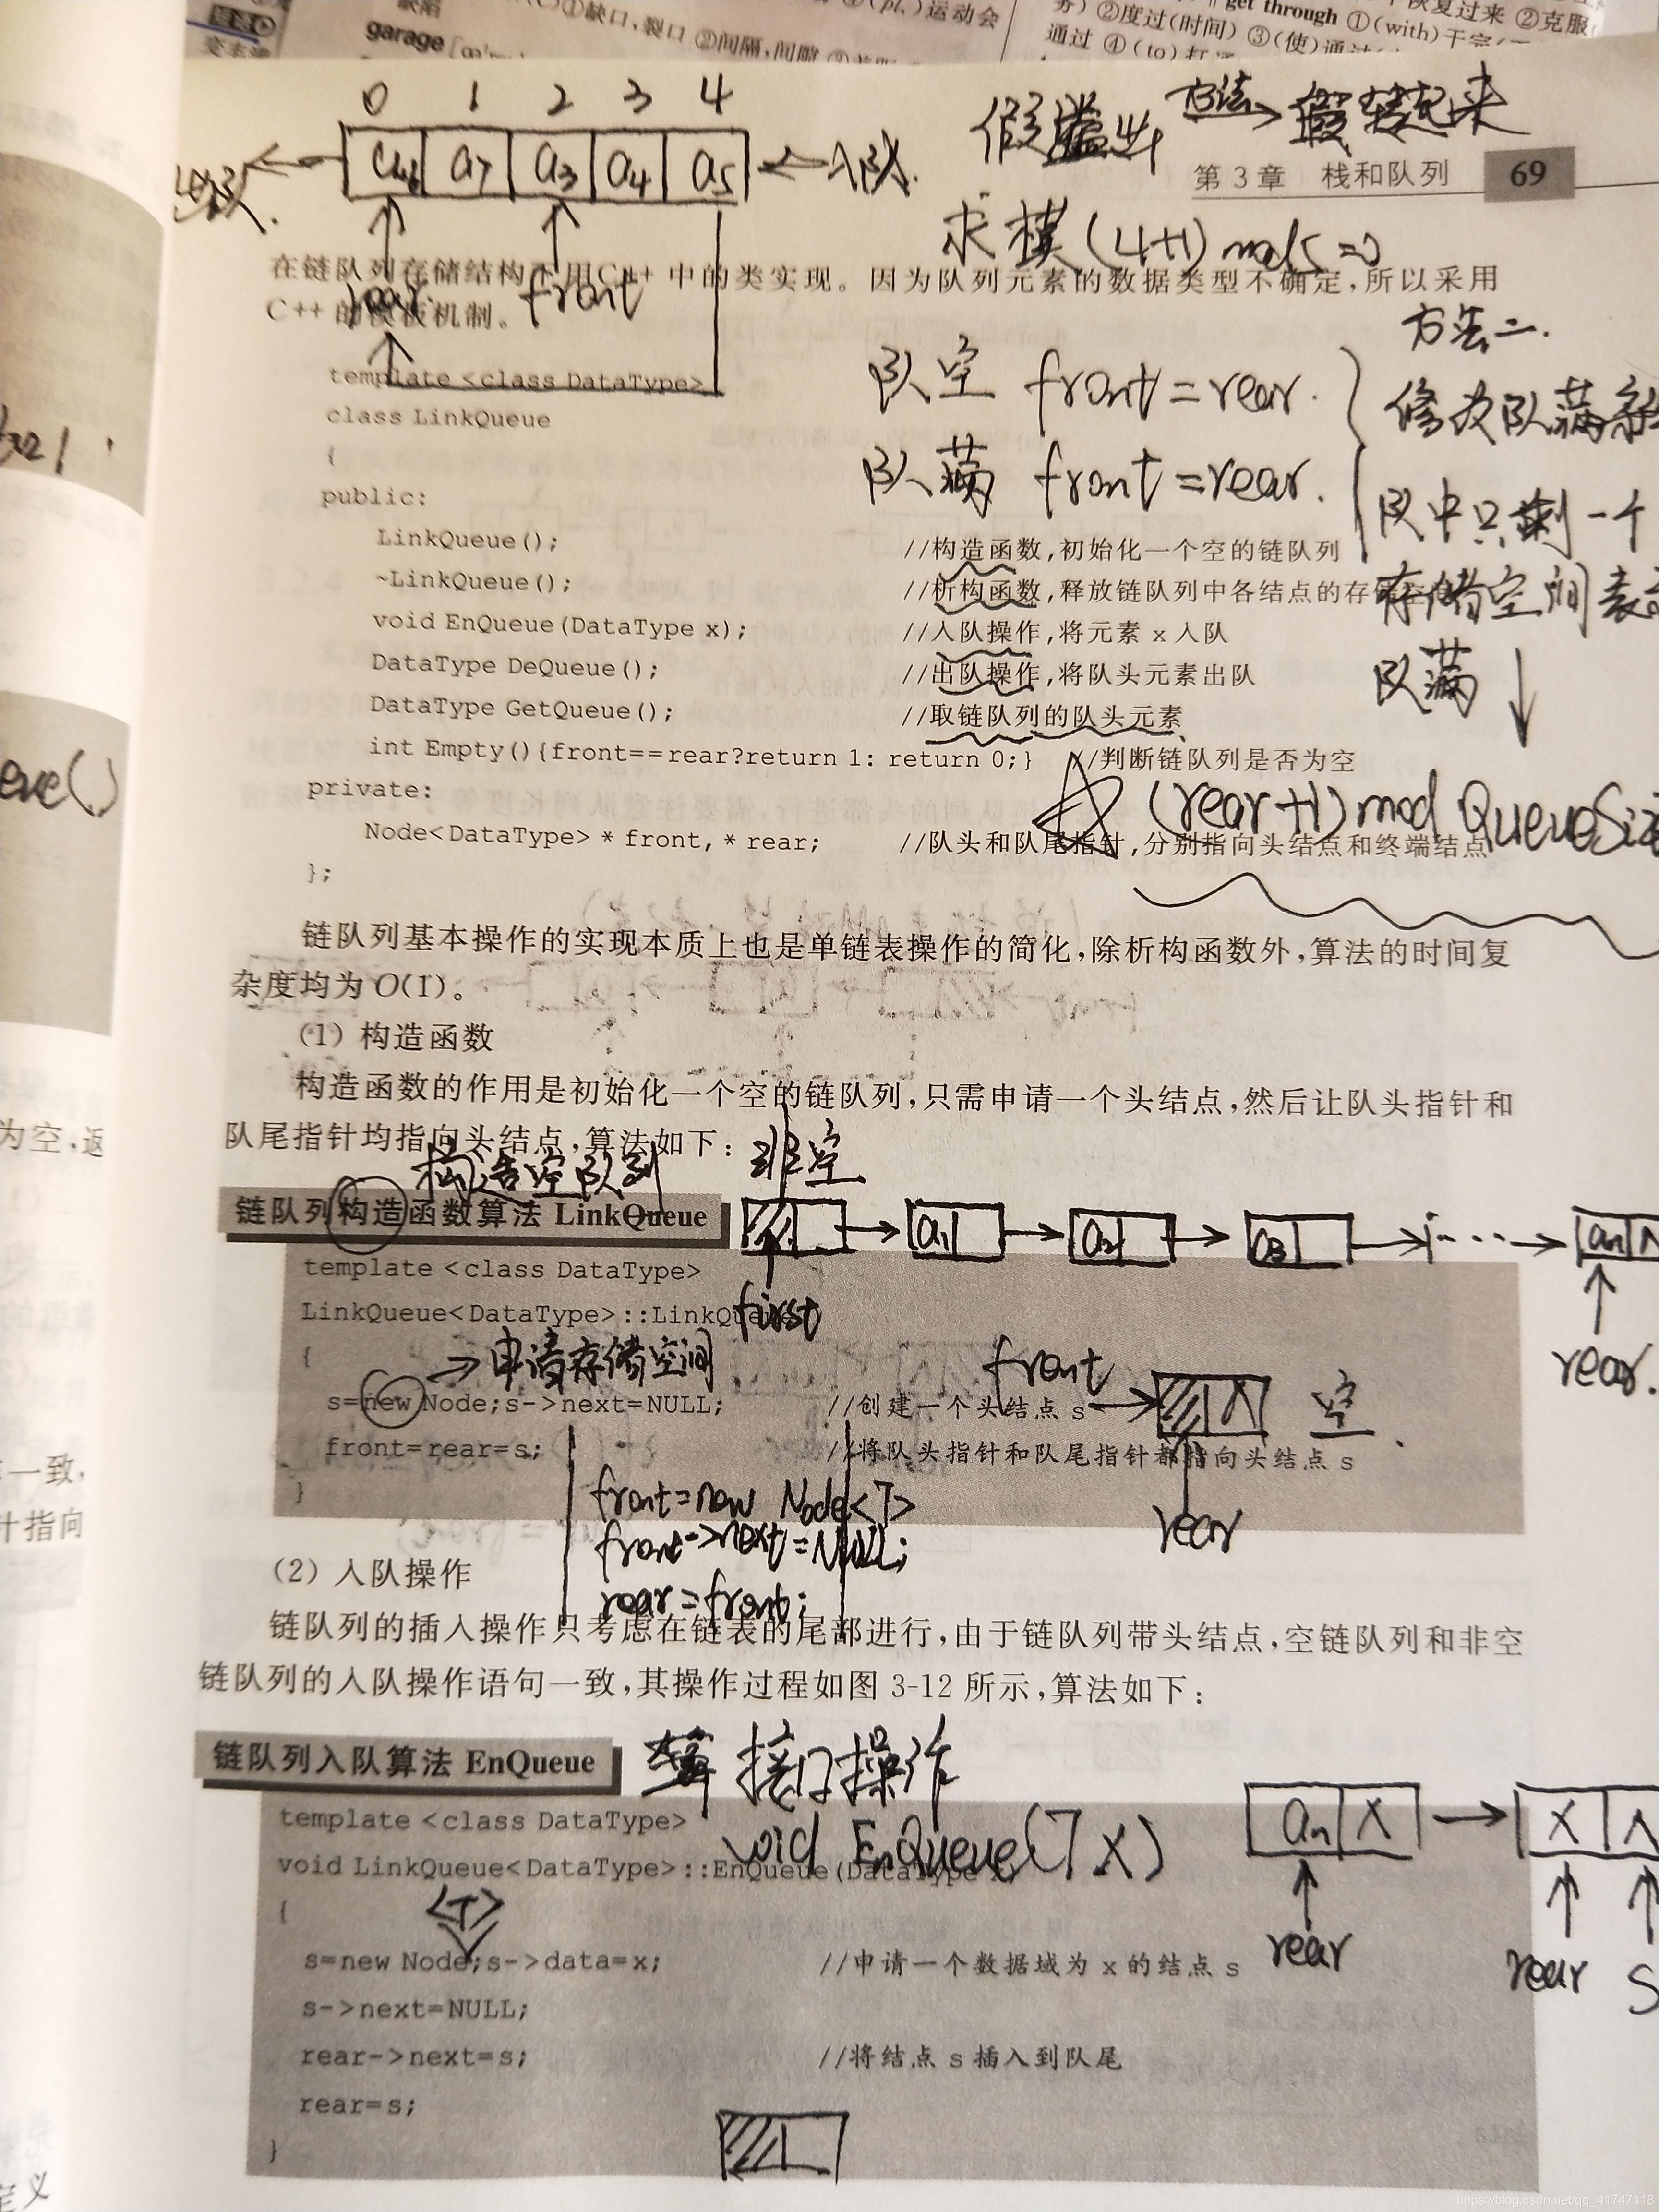 缺陷
①缺口,裂口 ②间隔,间隙
(pl.)运动会
garage
②度过(时间) ③(使)通过
get through ①(with)干完
恢复过来 ②克服
通过 ④(to)打
0 1 2 3 4
a6 a7 a3 a4 a5
出队.
入队.
rear. front
假溢出 方法→ 假接起来
第3章 栈和队列 69
求模(4+1)mod5=0
在链队列存储结构下用C++中的类实现。因为队列元素的数据类型不确定,所以采用
C++的模板机制。
方法二.
队空 front=rear.
队满 front=rear.
修改队满条
队中只剩一个
存储空间表示
队满
(rear+1)mod QueueSize
template <class DataType>
class LinkQueue
{
public:
LinkQueue(); //构造函数,初始化一个空的链队列
~LinkQueue(); //析构函数,释放链队列中各结点的存储空间
void EnQueue(DataType x); //入队操作,将元素 x 入队
DataType DeQueue(); //出队操作,将队头元素出队
DataType GetQueue(); //取链队列的队头元素
int Empty(){front==rear?return 1: return 0;} //判断链队列是否为空
private:
Node<DataType> * front, * rear; //队头和队尾指针,分别指向头结点和终端结点
};
链队列基本操作的实现本质上也是单链表操作的简化,除析构函数外,算法的时间复
杂度均为O(1)。
(1) 构造函数
构造函数的作用是初始化一个空的链队列,只需申请一个头结点,然后让队头指针和
队尾指针均指向头结点,算法如下:
构造空队列
非空
链队列构造函数算法 LinkQueue
a1 a2 a3 ... an ∧
first
rear.
template <class DataType>
LinkQueue<DataType>::LinkQueue
{
→申请存储空间
s=new Node;s->next=NULL; //创建一个头结点 s
front=rear=s; //将队头指针和队尾指针都指向头结点 s
}
front
∧ 空
rear
front=new Node<T>
front->next=NULL;
rear=front;
(2) 入队操作
链队列的插入操作只考虑在链表的尾部进行,由于链队列带头结点,空链队列和非空
链队列的入队操作语句一致,其操作过程如图 3-12 所示,算法如下:
链队列入队算法 EnQueue
接口操作
void EnQueue(T x)
an
x ∧
rear
rear
s
template <class DataType>
void LinkQueue<DataType>::EnQueue(DataType x)
{
<T>
s=new Node;s->data=x; //申请一个数据域为 x 的结点 s
s->next=NULL;
rear->next=s; //将结点 s 插入到队尾
rear=s;
}
为空,返
一致,
指向
定义
https://blog.csdn.net/qq_41747118